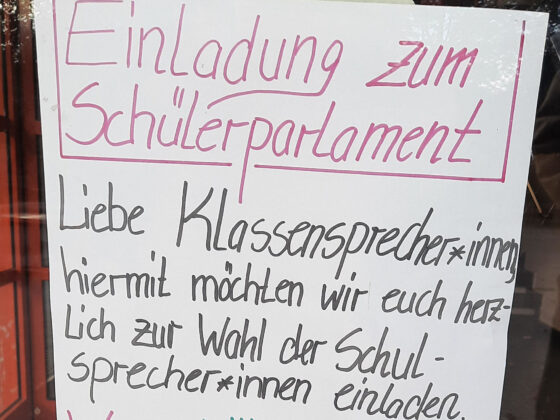 Einladung zum
Schülerparlament
Liebe Klassensprecher*innen,
hiermit möchten wir euch herz-
lich zur Wahl der Schul-
sprecher*innen einladen.